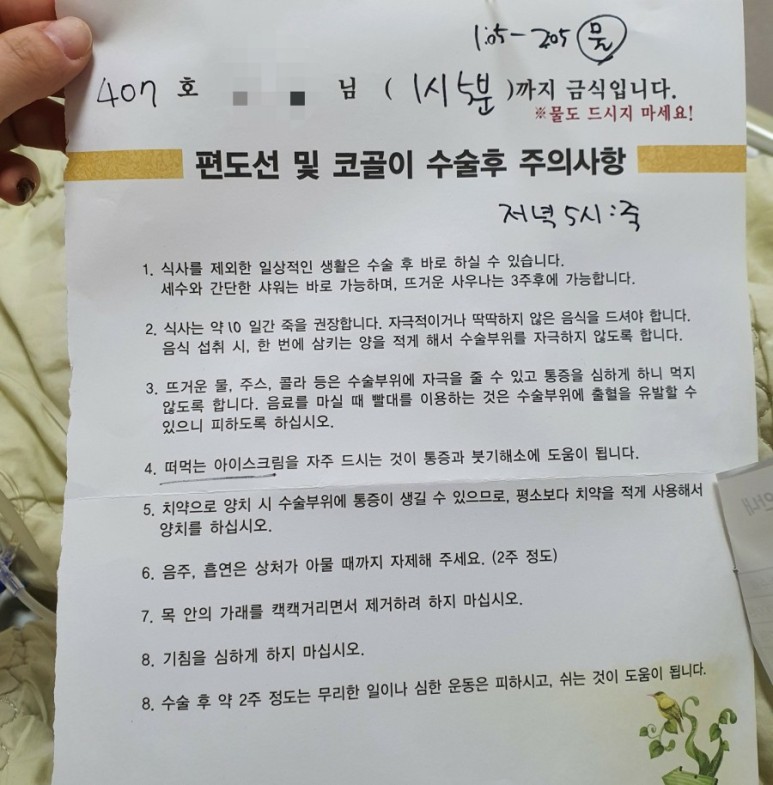 1:05 - 2:05 물
407 호 님 ( 1시 5분 )까지 금식입니다.
※물도 드시지 마세요!
편도선 및 코골이 수술후 주의사항
저녁 5시 : 죽
1. 식사를 제외한 일상적인 생활은 수술 후 바로 하실 수 있습니다.
세수와 간단한 샤워는 바로 가능하며, 뜨거운 사우나는 3주후에 가능합니다.
2. 식사는 약 10 일간 죽을 권장합니다. 자극적이거나 딱딱하지 않은 음식을 드셔야 합니다.
음식 섭취 시, 한 번에 삼키는 양을 적게 해서 수술부위를 자극하지 않도록 합니다.
3. 뜨거운 물, 주스, 콜라 등은 수술부위에 자극을 줄 수 있고 통증을 심하게 하니 먹지
않도록 합니다. 음료를 마실 때 빨대를 이용하는 것은 수술부위에 출혈을 유발할 수
있으니 피하도록 하십시오.
4. 떠먹는 아이스크림을 자주 드시는 것이 통증과 붓기해소에 도움이 됩니다.
5. 치약으로 양치 시 수술부위에 통증이 생길 수 있으므로, 평소보다 치약을 적게 사용해서
양치를 하십시오.
6. 음주, 흡연은 상처가 아물 때까지 자제해 주세요. (2주 정도)
7. 목 안의 가래를 캑캑거리면서 제거하려 하지 마십시오.
8. 기침을 심하게 하지 마십시오.
8. 수술 후 약 2주 정도는 무리한 일이나 심한 운동은 피하시고, 쉬는 것이 도움이 됩니다.